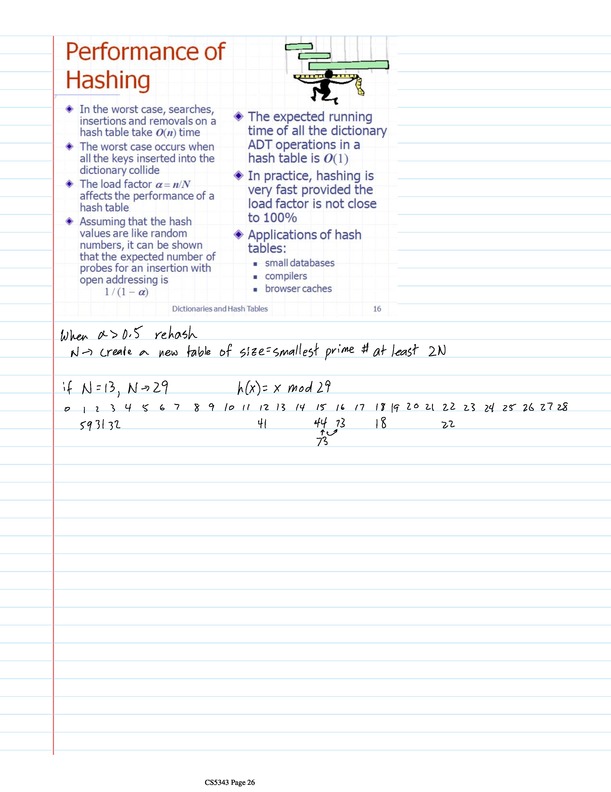 Performance of
Hashing
In the worst case, searches,
insertions and removals on a
hash table take O(n) time
The worst case occurs when
all the keys inserted into the
dictionary collide
The load factor α = n/N
affects the performance of a
hash table
Assuming that the hash
values are like random
numbers, it can be shown
that the expected number of
probes for an insertion with
open addressing is
1 / (1 − α)
The expected running
time of all the dictionary
ADT operations in a
hash table is O(1)
In practice, hashing is
very fast provided the
load factor is not close
to 100%
Applications of hash
tables:
small databases
compilers
browser caches
Dictionaries and Hash Tables 16
When α > 0.5 rehash
N → create a new table of size = smallest prime # at least 2N
if N = 13, N → 29 h(x) = x mod 29
0 1 2 3 4 5 6 7 8 9 10 11 12 13 14 15 16 17 18 19 20 21 22 23 24 25 26 27 28
59 31 32 41 44 73 18 22
73
CS5343 Page 26